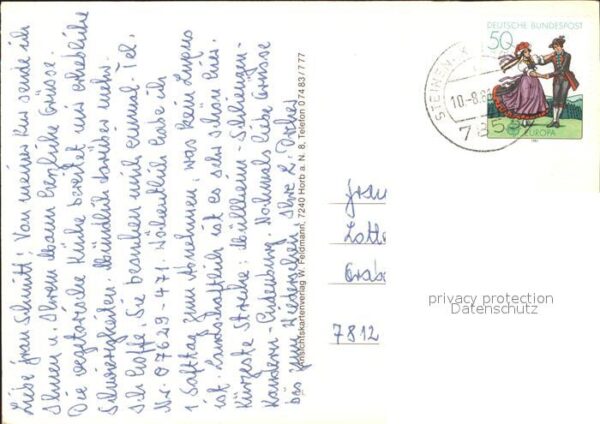 Liebe Frau Schmitt! Von meiner Kur sende ich
Ihnen u. Ihrem Mann herzliche Grüsse.
Die vegetarische Küche bereitet mir erhebliche
Schwierigkeiten. Mündlich darüber mehr.
Ich hoffe, Sie besuchen mich einmal. Tel.
Nr. 07629-471. Wöchentlich habe ich
1 Safttag zum Abnehmen, was kein Luxus
ist. Landschaftlich ist es sehr schön hier.
Kürzeste Strecke: Müllheim - Schliengen-
Kandern - Endenburg. Nochmals liebe Grüsse
bis zum Wiedersehen Ihre L.
Ansichtskartenverlag W. Feldmann, 7240 Horb a. N. 8, Telefon 07483/777
DEUTSCHE BUNDESPOST
50
EUROPA
STEINEN
10.-8.8
785
Frau
Lotte
Grabe
7812
privacy protection
Datenschutz